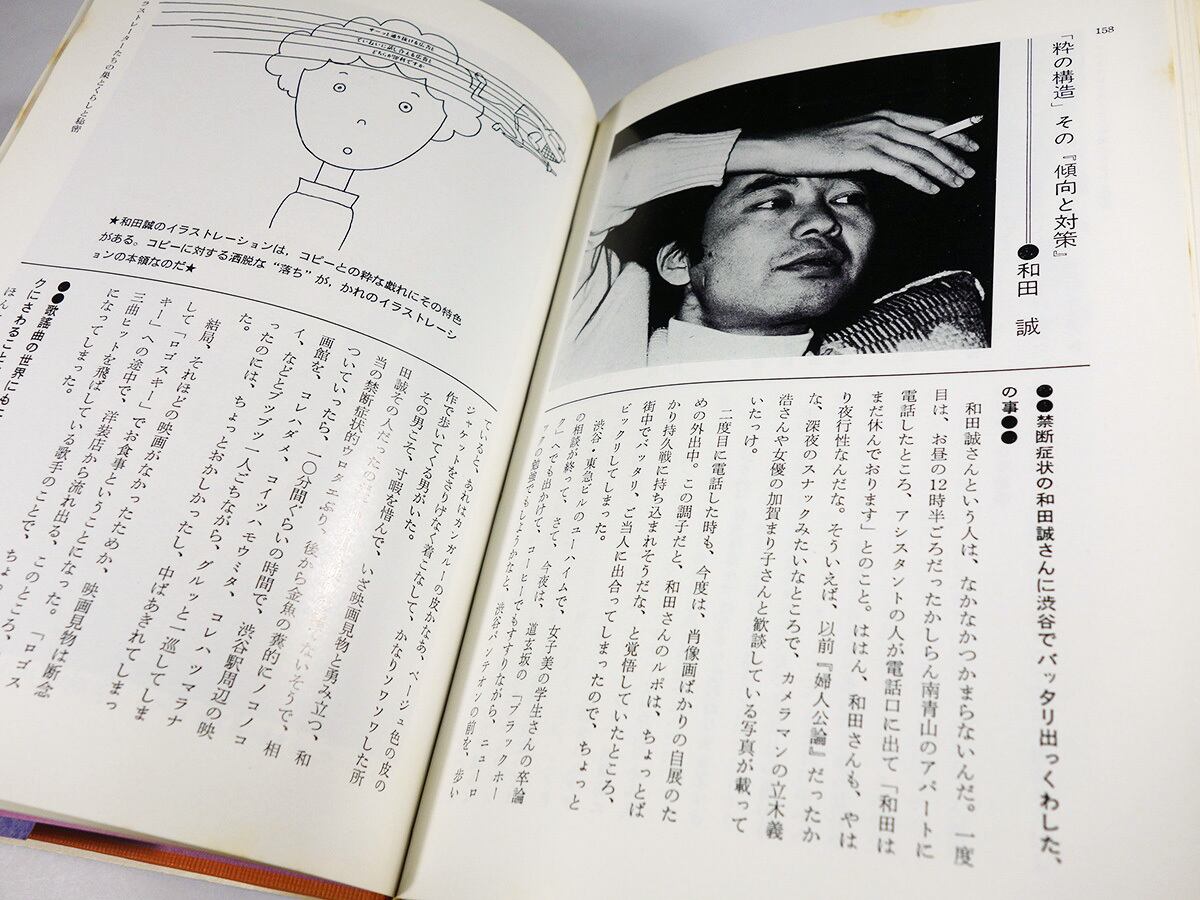 158
「粋の構造」その『傾向と対策』
●和田 誠
●●禁断症状の和田誠さんに渋谷でバッタリ出っくわした、
の事●●
和田誠さんという人は、なかなかつかまらないんだ。一度
目は、お昼の12時半ごろだったかしらん南青山のアパートに
電話したところ、アシスタントの人が電話口に出て「和田は
まだ休んでおります」とのこと。ははん、和田さんも、やは
り夜行性なんだな。そういえば、以前『婦人公論』だったか
な、深夜のスナックみたいなところで、カメラマンの立木義
浩さんや女優の加賀まり子さんと歓談している写真が載って
いたっけ。
二度目に電話した時も、今度は、肖像画ばかりの自展のた
めの外出中。この調子だと、和田さんのルポは、ちょっとば
かり持久戦に持ち込まれそうだな、と覚悟していたところ、
街中でバッタリ、ご当人に出合ってしまったので、ちょっと
ビックリしてしまった。
渋谷・東急ビルのユーハイムで、女子美の学生さんの卒論
の相談が終って、さて、今夜は、道玄坂の「ブラックホー
ク」へでも出かけて、コーヒーでもすすりながら、ニューロ
ックの勉強でもしようかなと、渋谷パンテオンの前を、歩い
ラストレーターたちの巣とくらしと秘密
すーっと通り抜ける広告と
ていねいに話し合える広告と
どちらが評判ですか
★和田誠のイラストレーションは，コピーとの粋な戯れにその特色
がある。コピーに対する洒脱な“落ち”が，かれのイラストレーシ
ョンの本領なのだ★
ていると、あれはカンガルーの皮かなあ、ベージュ色の皮の
ジャケットをさりげなく着こなして、かなりソワソワした所
作で歩いてくる男がいた。
その男こそ、寸暇を惜んで、いざ映画見物と勇み立つ、和
田誠その人だったの
当の禁断症状的ウロタエぶり、後から金魚の糞的にノコノコ
ついていったら、一〇分間ぐらいの時間で、渋谷駅周辺の映
画館を、コレハダメ、コイツハモウミタ、コレハツマラナ
イ、などとブツブツ一人ごちながら、グルッと一巡してしま
ったのには、ちょっとおかしかったし、中ばあきれてしまっ
た。
結局、それほどの映画がなかったためか、映画見物は断念
して「ロゴスキー」でお食事ということになった。「ロゴス
キー」への途中で、洋装店から流れ出る、このところ、
三曲ヒットを飛ばしている歌手のことで、ちょっ
になってしまった。
●●歌謡曲の世界にも
クにさわること
ほん